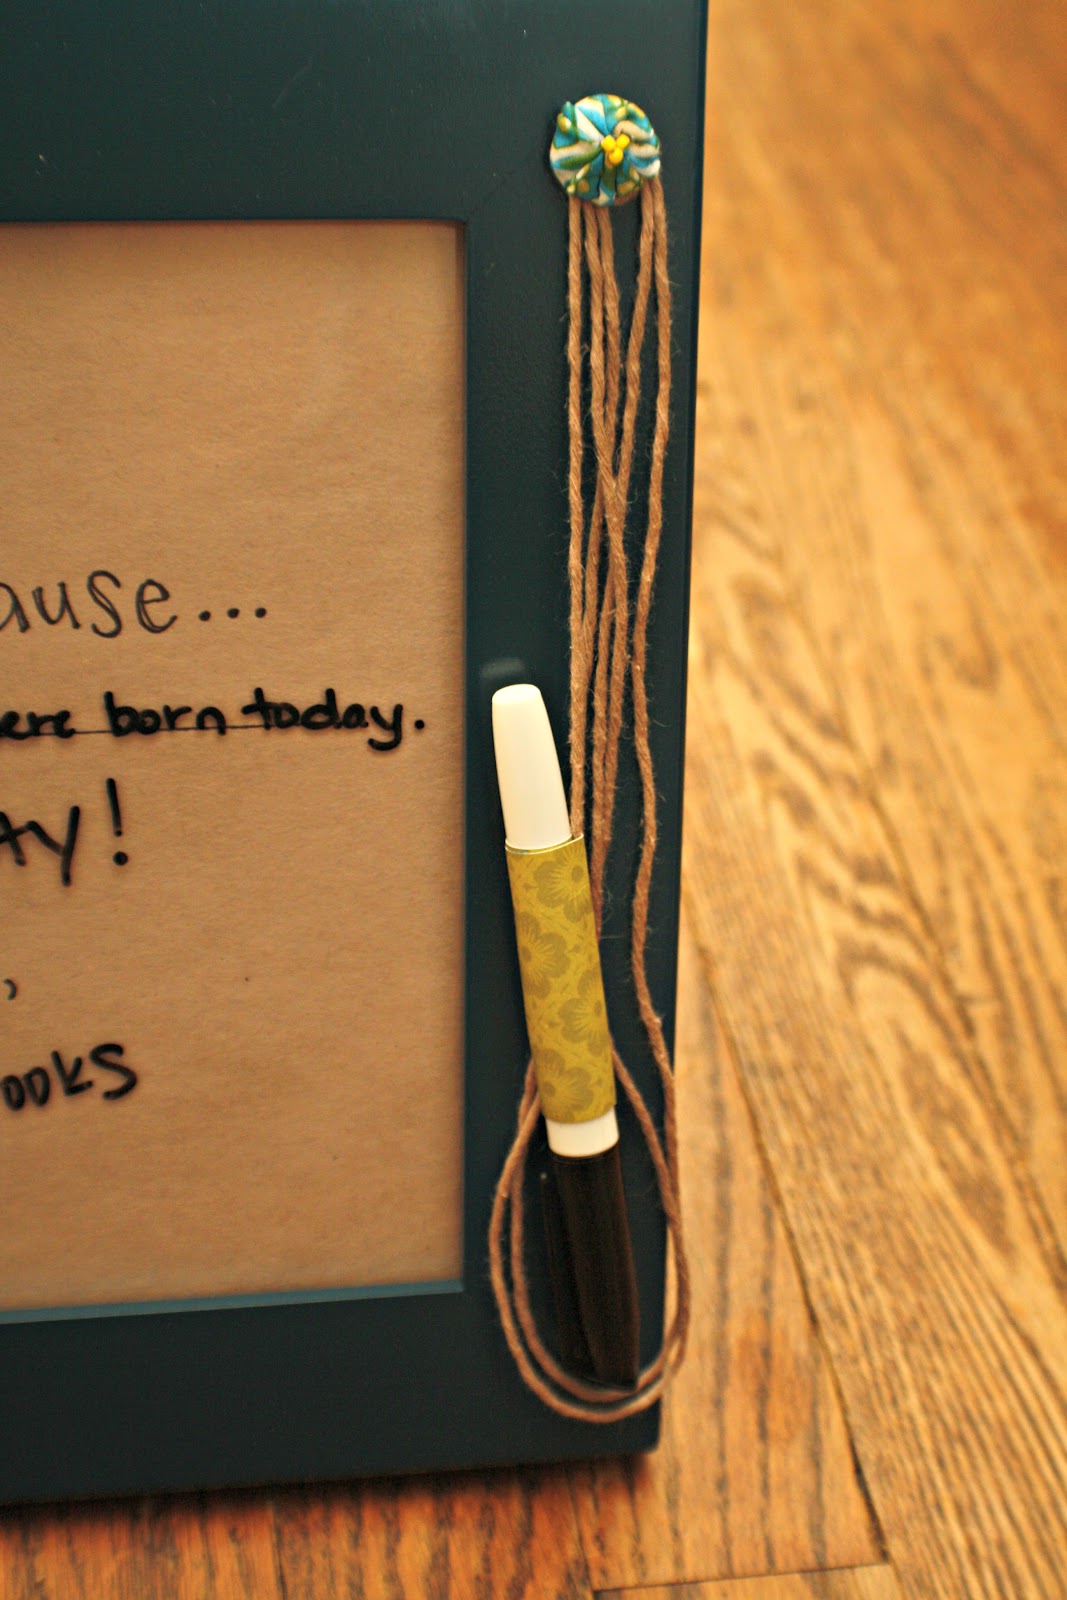 ause...
ere born today.
ay!
,
ooks